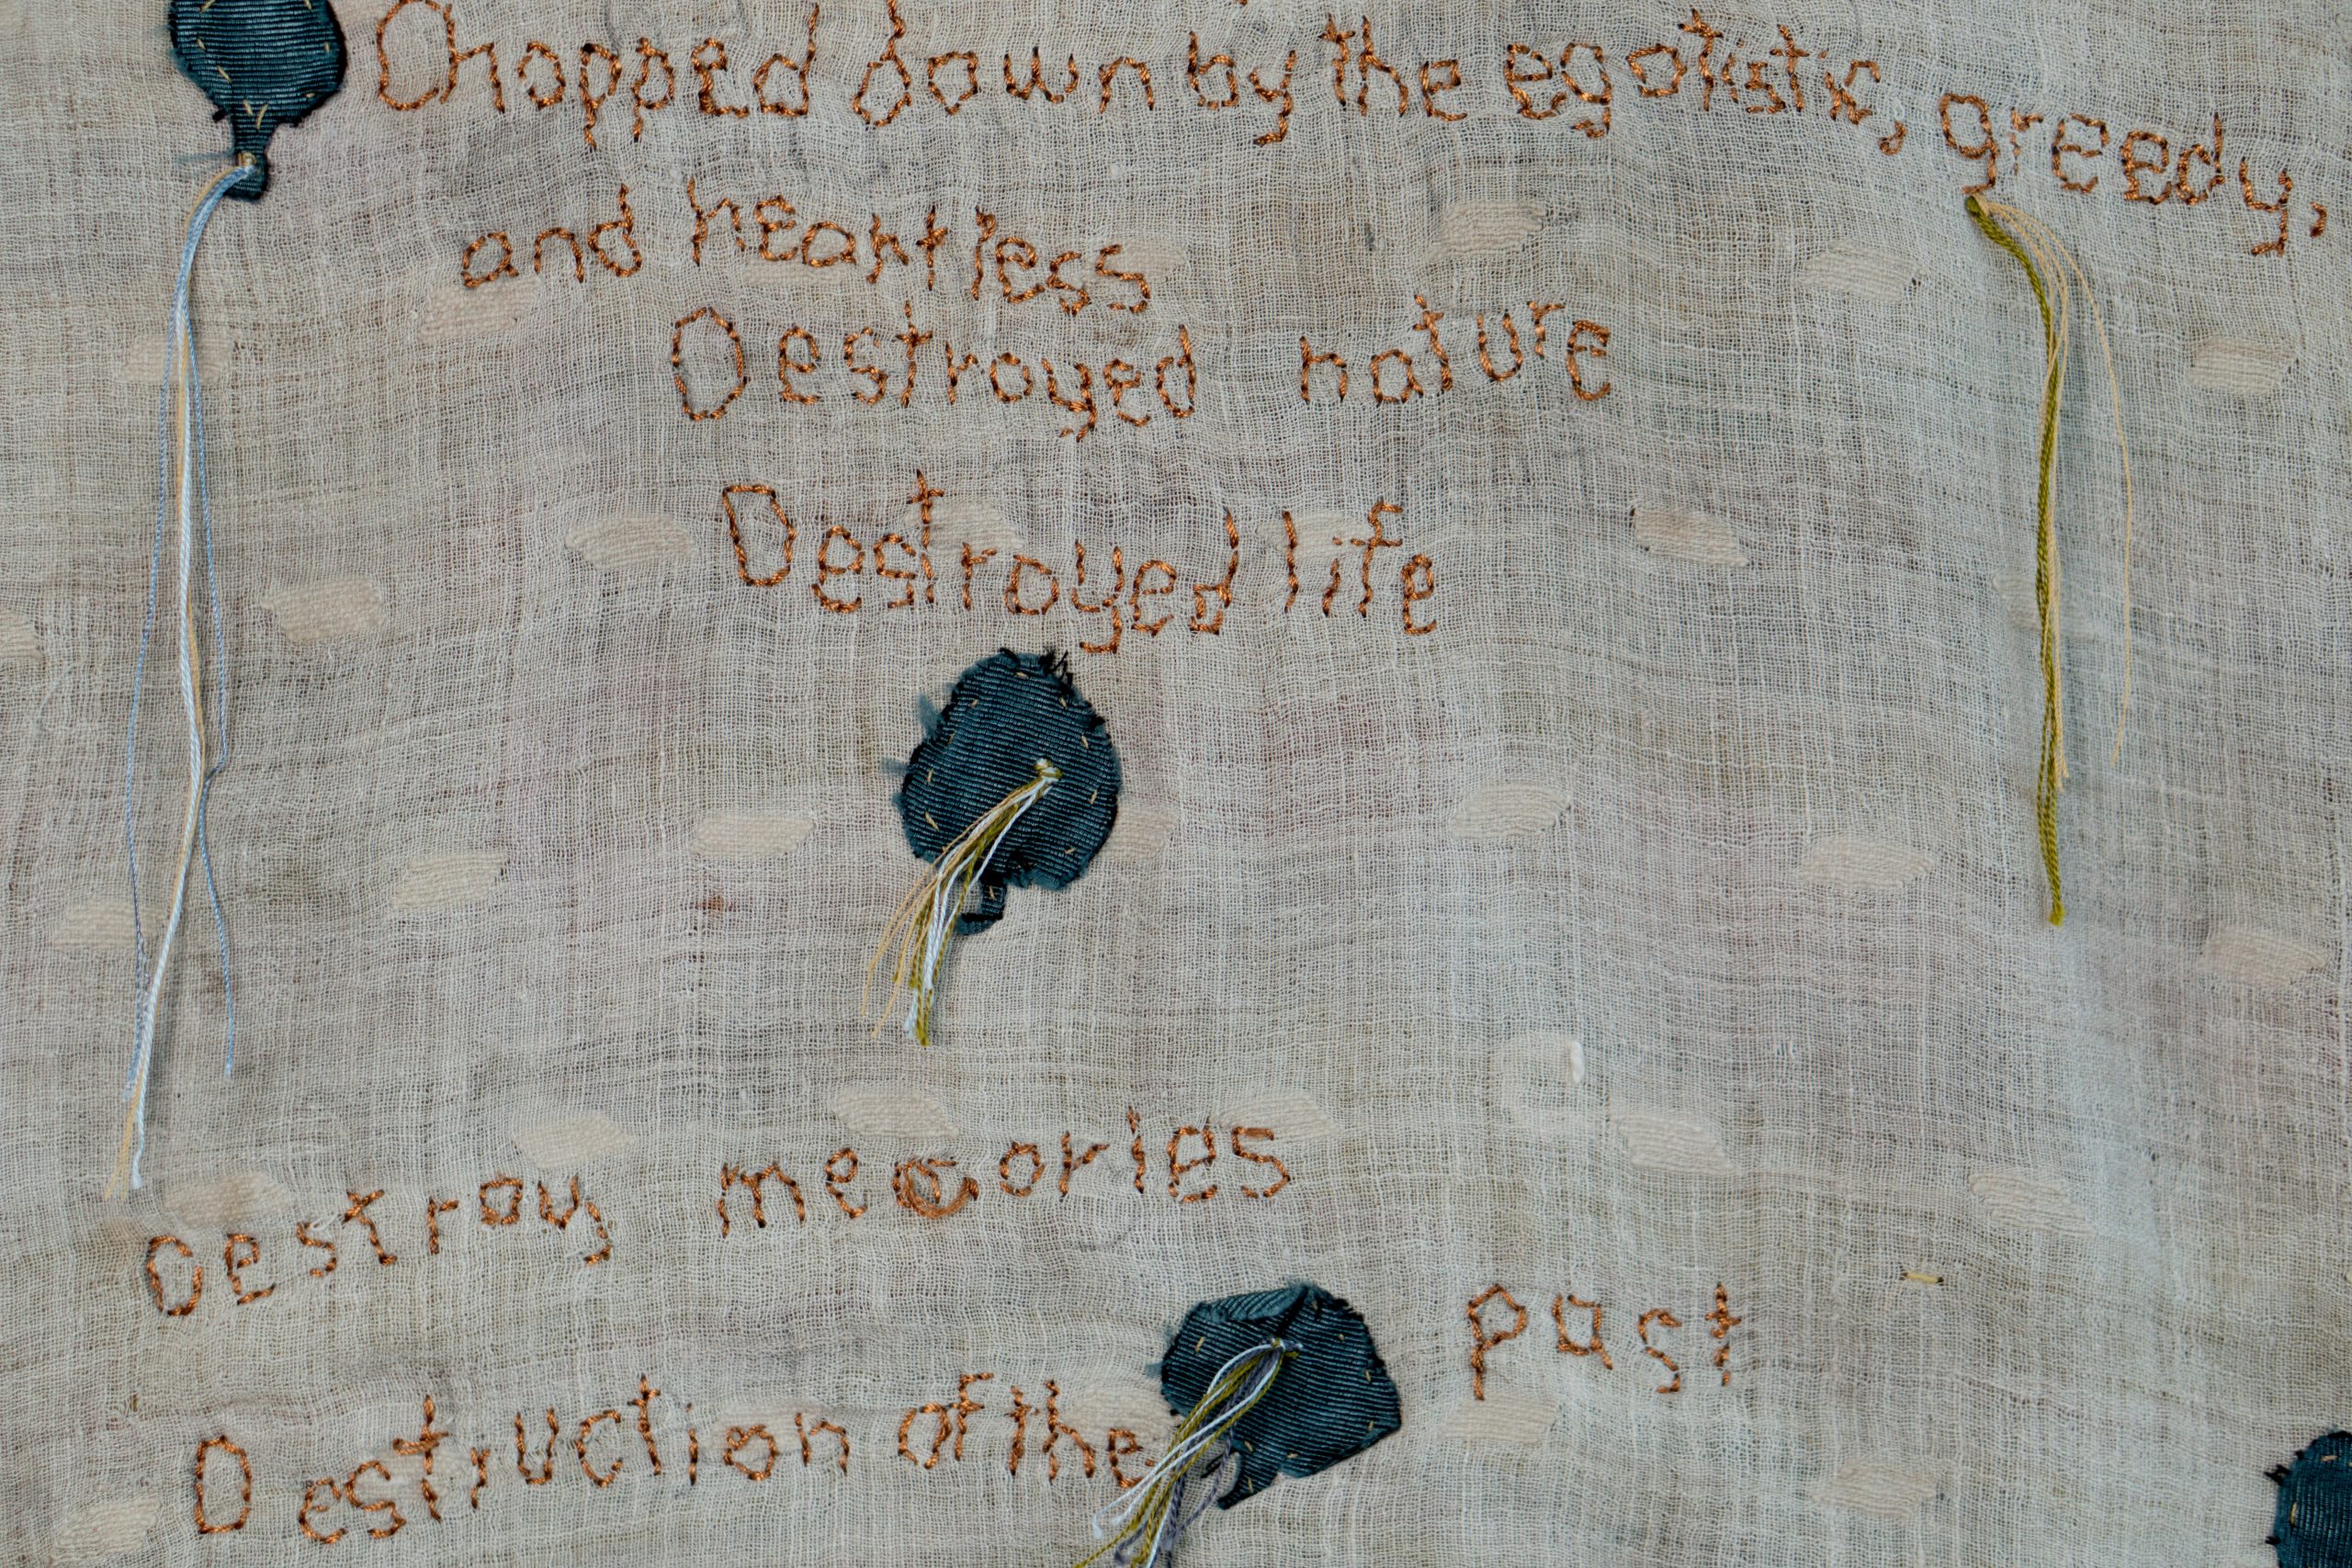 Chopped down by the egotistic, greedy,
and heartless
Destroyed nature
Destroyed life
Destroy memories
Destruction of the past